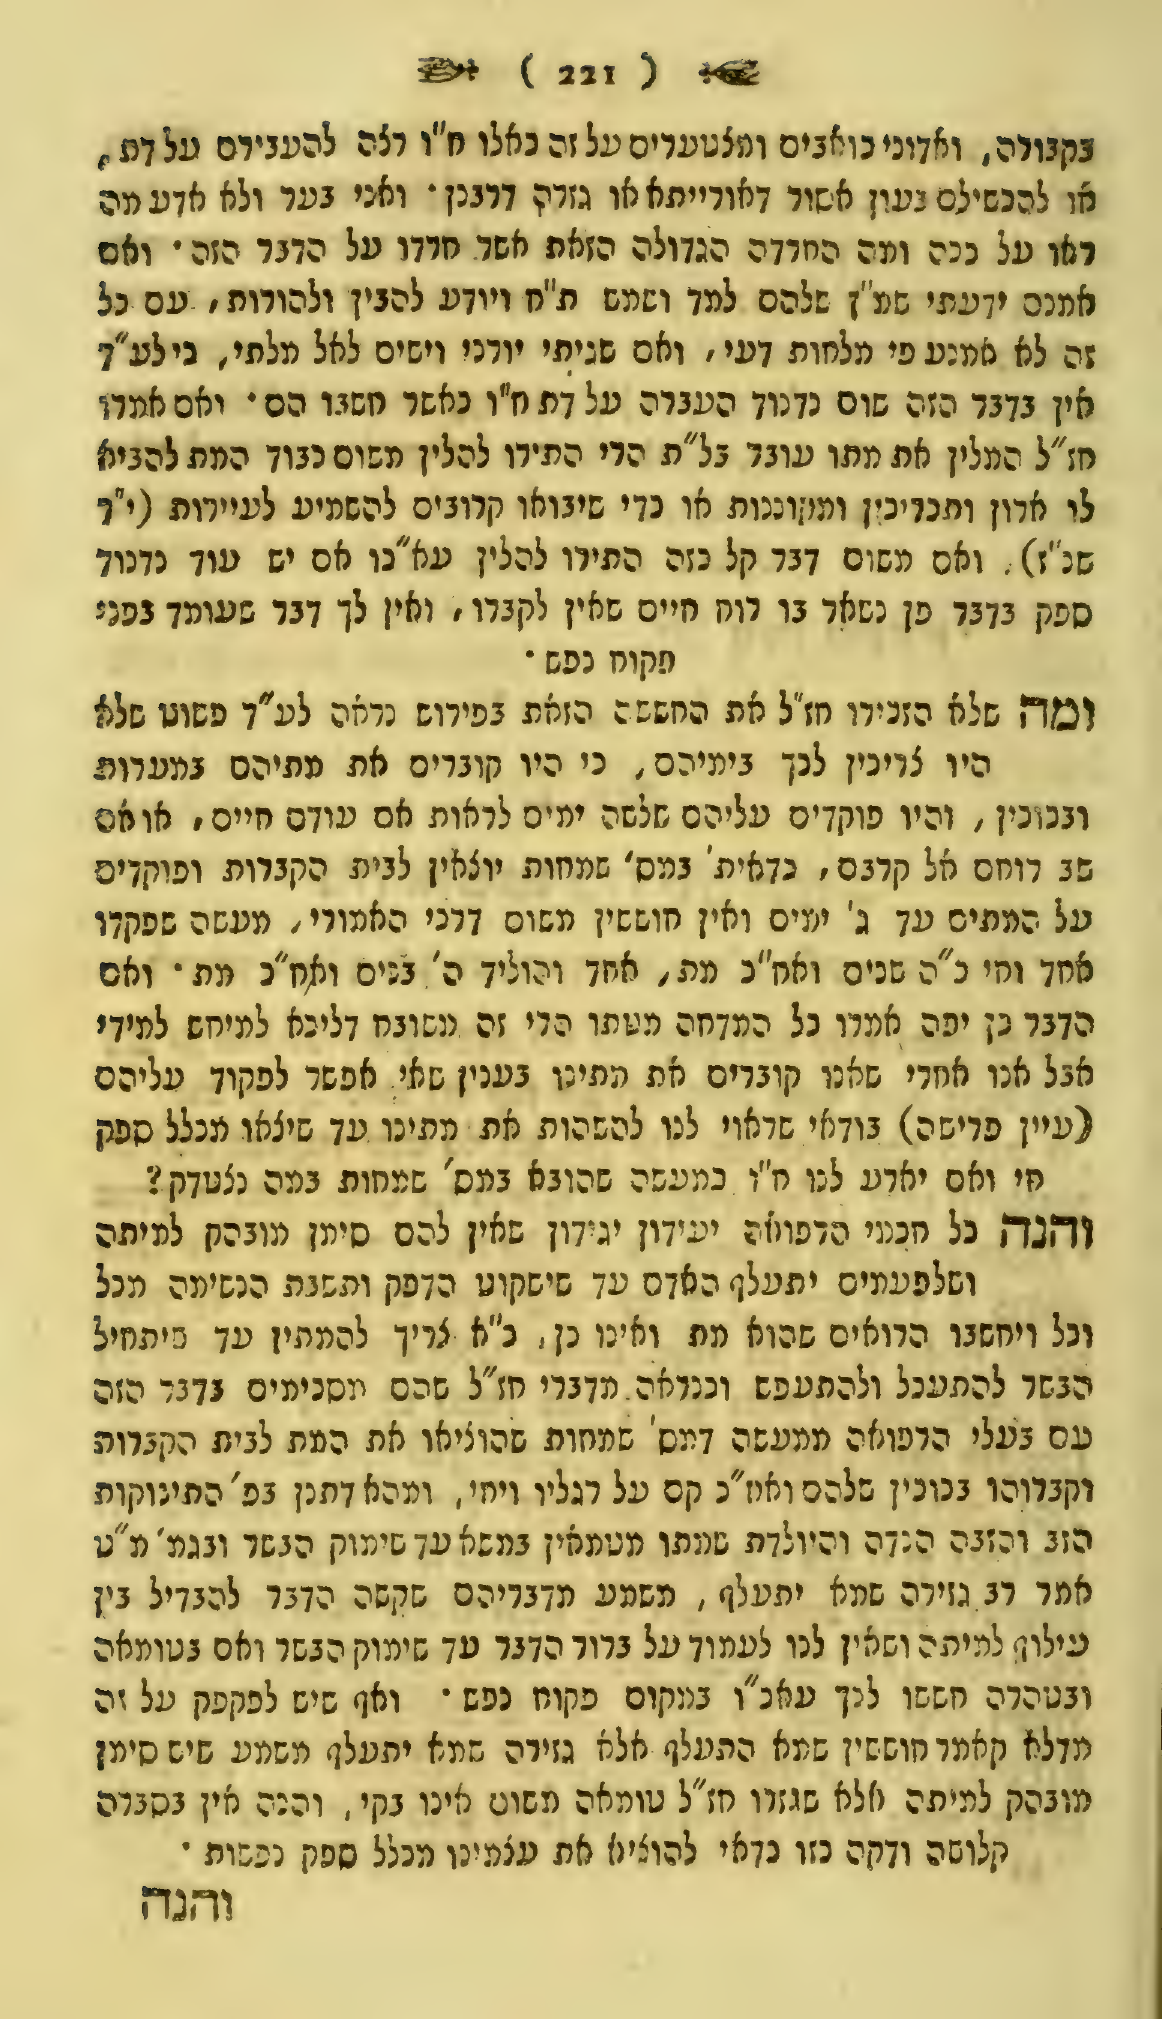 ( 221 )
בקבורה, ואדוני כואבים ומצטערים על זה כאלו ח"ו רצה להעבירם על דת,
או להכשילם בעון אסור דאורייתא או גזרה דרבנן· ואני בער ולא אדע מה
ראו על ככה ומה החרדה הגדולה הזאת אשר חרדו על הדבר הזה· ואם
אמנם ידעתי שמ"ץ שלהם למד ושמש ת"ח ויודע להבין ולהורות, עם כל
זה לא אמנע פי מלחות דעי, ואם שגיתי יורני וישים לאל מלתי, כי לע"ד
אין בדבר הזה שום נדנוד העברה על דת ח"ו כאשר חשבו הם· ואם אמרו
חז"ל המלין את מתו עובר בל"ת הרי התירו להלין משום כבוד המת להביא
לו ארון ותכריכין ומקוננות או כדי שיבואו קרובים להשמיע לעיירות (י"ד
שנ"ז). ואם משום דבר קל כזה התירו להלין עא"כו אם יש עוד נדנוד
ספק בדבר פן נשאר בו רוח חיים שאין לקברו, ואין לך דבר שעומד בפני
פקוח נפש·
ומה שלא הזכירו חז"ל את החששה הזאת בפירוש נראה לע"ד פשוט שלא
היו צריכין לכך בימיהם, כי היו קוברים את מתיהם במערות
ובכוכין, והיו פוקדים עליהם שלשה ימים לראות אם עודם חיים, או אם
שב רוחם אל קרבם, כדאית' במס' שמחות יוצאין לבית הקברות ופוקדים
על המתים עד ג' ימים ואין חוששין משום דרכי האמורי, מעשה שפקדו
אחד וחי כ"ה שנים ואח"כ מת, אחד והוליד ה' בנים ואח"כ מת· ואם
הדבר כן יפה אמרו כל המדחה מטתו הרי זה משובח דליכא למיחש למידי
אבל אנו אחרי שאנו קוברים את מתינו בענין שאי אפשר לפקוד עליהם
(עיין פרישה) בודאי שראוי לנו להשהות את מתינו עד שיצאו מכלל ספק
חי ואם יארע לנו ח"ו כמעשה שהובא במס' שמחות במה נצטדק?
והנה כל חכמי הרפואה יעידון יגידון שאין להם סימן מובהק למיתה
ושלפעמים יתעלף האדם עד שישקוט הדפק ותשבת הנשימה מכל
וכל ויחשבו הרואים שהוא מת ואינו כן, כ"א צריך להמתין עד שיתחיל
הבשר להתעכל ולהתעפש וכנראה מדברי חז"ל שהם מסכימים בדבר הזה
עם בעלי הרפואה ממעשה דמס' שמחות שהוציאו את המת לבית הקברות
וקברוהו בכוכין שלהם ואח"כ קם על רגליו ויחי, ומהא דתנן בפ' התינוקות
הזב והזבה הנדה והיולדת שמתו מטמאין במשא עד שימוק הבשר ובגמ' מ"ט
אמר רב גזירה שמא יתעלף, משמע מדבריהם שקשה הדבר להבדיל בין
עילוף למיתה ושאין לנו לעמוד על ברור הדבר עד שימוק הבשר ואם בטומאה
ובטהרה חששו לכך עאכ"ו במקום פקוח נפש· ואף שיש לפקפק על זה
מדלא קאמר חוששין שמא התעלף אלא גזירה שמא יתעלף משמע שיש סימן
מובהק למיתה אלא שגזרו חז"ל טומאה משום אינו בקי, והנה אין בסברה
קלושה ודקה כזו כדאי להוציא את עצמינו מכלל ספק נפשות·
והנה